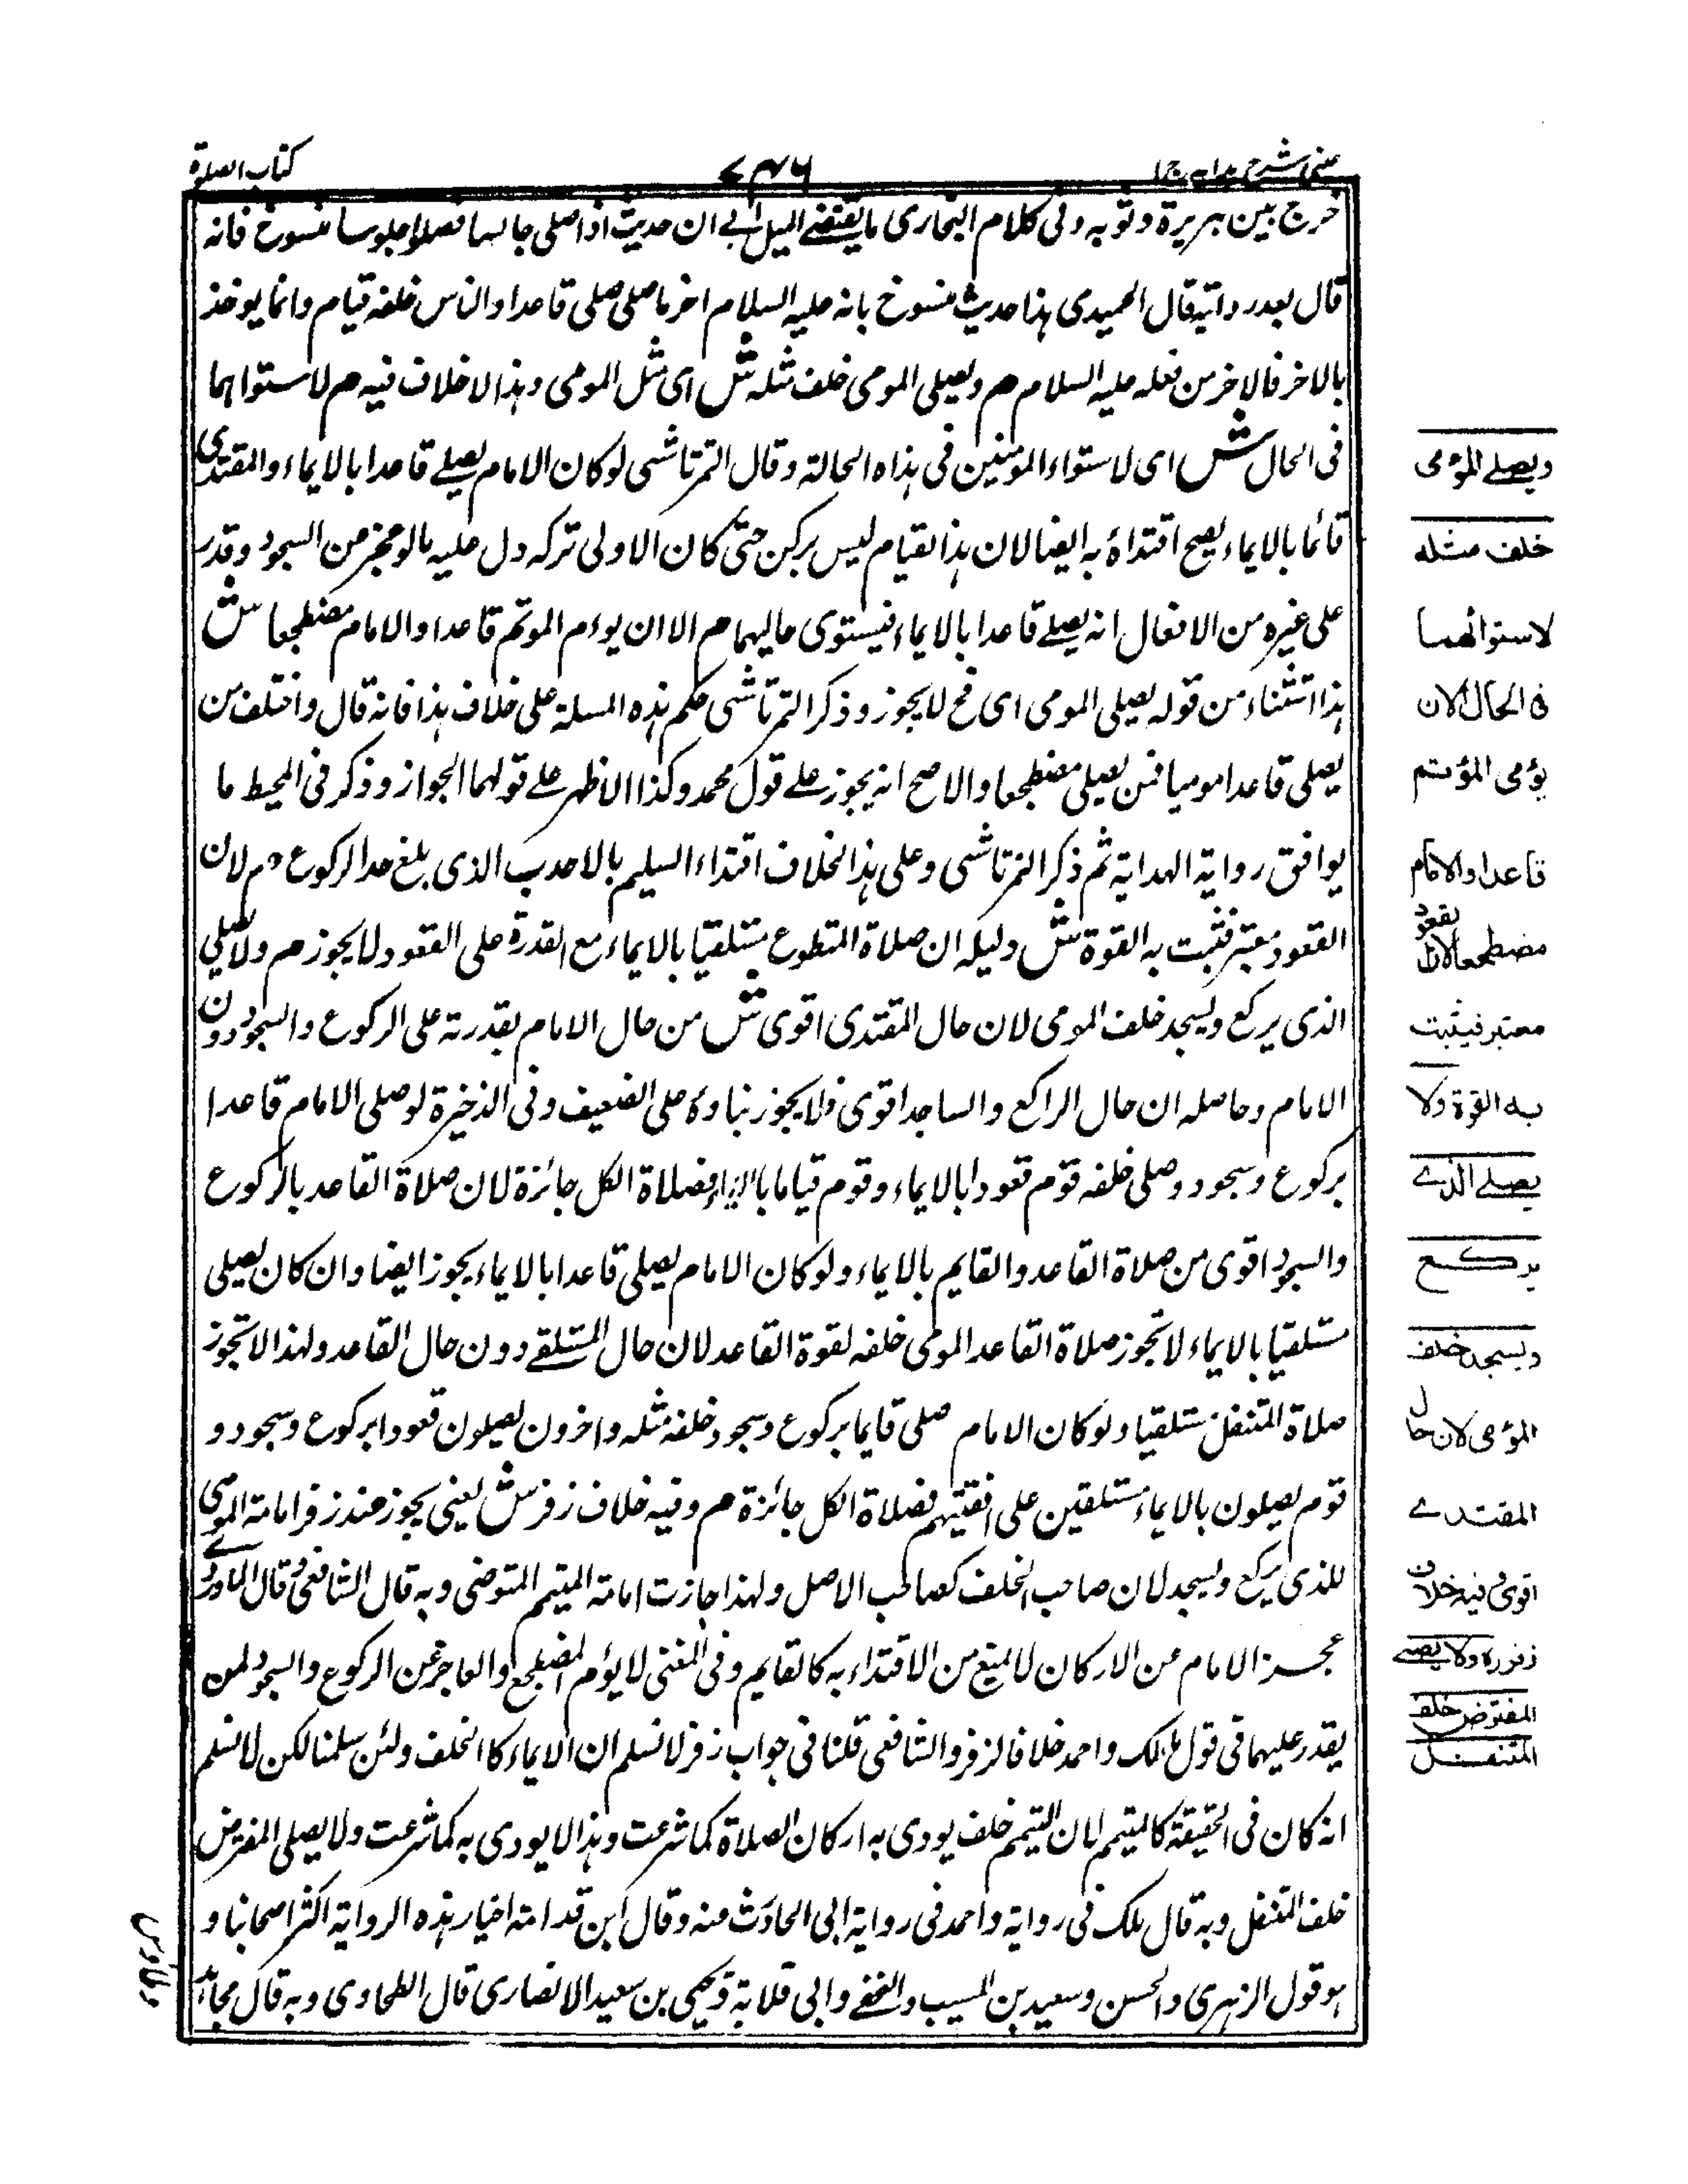 عينى شرح هدايه ج ا
۷۴۶
كتاب الصلوة
خرج بين بريرة وثوبه وفى كلام البخارى ما يقتضے الميل الے ان حديث اذا صلى جالسا فصلوا جلوسا منسوخ فانه
قال بعد روايته قال الحميدى هذا حديث منسوخ بانه عليه السلام اخر ما صلى صلى قاعدا والناس خلفه قيام وانما يوخذ
بالاخر فالاخر من فعله عليه السلام م ويصلى المومى خلف مثله ش اى مثل المومى وهذا لا خلاف فيه م لاستوائهما
فى الحال ش اى لاستواء المومئين فى هذه الحالة وقال التمرتاشى لو كان الامام يصلے قاعدا بالايماء والمقتدى
قائما بالايماء يصح اقتداؤه به ايضا لان هذا القيام ليس بركن حتى كان الاولى تركه دل عليه ما لو عجز من السجود وقدر
على غيره من الافعال انه يصلے قاعدا بالايماء فيستوى حاليهما م الا ان يوءم الموتم قاعدا والامام مضطجعا ش
هذا استثناء من قوله يصلى المومى اى فح لا يجوز وذكر التمرتاشى حكم هذه المسلة على خلاف هذا فانه قال واختلف من
يصلى قاعدا موميا فمن يصلى مضطجعا والاصح انه يجوز علے قول محمد وكذا الاظهر علے قولهما الجواز وذكر فى المحيط ما
يوافق رواية الهداية ثم ذكر التمرتاشى وعلى هذا الخلاف اقتداء السليم بالاحدب الذى بلغ حد الركوع م لان
القعود معتبر فثبت به القوة ش دليله ان صلاة المتطوع مستلقيا بالايماء مع القدرة على القعود لا يجوز م ولا يصلي
الذى يركع ويسجد خلف المومى لان حال المقتدى اقوى ش من حال الامام بقدرته على الركوع والسجود دون
الامام وحاصله ان حال الراكع والساجد اقوى فلا يجوز بناوه على الضعيف وفى الذخيرة لو صلى الامام قاعدا
بركوع وسجود وصلى خلفه قوم قعودا بالايماء وقوم قياما بالايماء فصلاة الكل جائزة لان صلاة القاعد بالركوع
والسجود اقوى من صلاة القاعد والقايم بالايماء ولو كان الامام يصلى قاعدا بالايماء يجوز ايضا وان كان يصلى
مستلقيا بالايماء لا تجوز صلاة القاعد المومى خلفه لقوة القاعد لان حال المستلقے دون حال القاعد ولهذا لا تجوز
صلاة المتنفل مستلقيا ولو كان الامام صلى قايما بركوع وسجود خلفه مثله واخرون يصلون قعودا بركوع وسجود و
قوم يصلون بالايماء مستلقين على اقفيتهم فصلاة الكل جائزة م وفيه خلاف زفر ش يعنى يجوز عند زفر امامة المومى
للذى يركع ويسجد لان صاحب الخلف كصاحب الاصل ولهذا جازت امامة المتيمم المتوضى وبه قال الشافعى وقال الماوردے
عجز الامام من الاركان لا يمنع من الاقتداء به كالقايم وفى المغنى لا يؤم المضطجع والعاجز عن الركوع والسجود لمن
يقدر عليهما فى قول مالك واحمد خلافا لزفر والشافعى قلنا فى جواب زفر لا نسلم ان الايماء كالخلف ولئن سلمنا لكن لا نسلم
انه كان فى الحقيقة كالمتيمم لان التيمم خلف يودى به اركان الصلاة كما شرعت وهذا لا يودى به كما شرعت ولا يصلى المفترض
خلف المتنفل وبه قال ملك فى رواية واحمد فى رواية ابى الحادث منه وقال ابن قدامة اختيار هذه الرواية اكثر اصحابنا و
هو قول الزهرى والحسن وسعيد بن المسيب والنخعے وابى قلابة ويحيى بن سعيد الانصارى قال الطحاوى وبه قال مجاهد
وطاؤس
ويصلے المؤمى
خلف مثله
لاستوائهما
فى الحال الا ان
يؤمى المؤتم
قاعدا والامام
مضطجعا لان القعود
معتبر فيثبت
به القوة ولا
يصلے الذے
يركع
ويسجد خلف
المؤمى لان حال
المقتدے
اقوى وفيه خلاف
زفر ره ولا يصلے
المفترض خلف
المتنفل